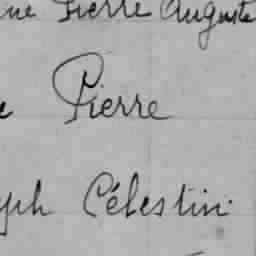 ne Pierre Auguste
e Pierre
ph Célestin.